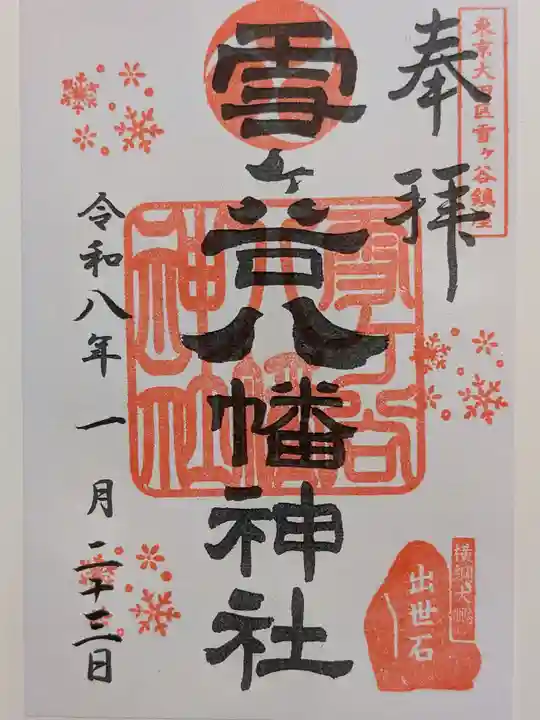 東京大田区雪ヶ谷鎮座
奉拝
雪ヶ谷八幡神社
雪ヶ谷
八幡
神社
令和八年一月二十三日
横綱大鵬
出世石